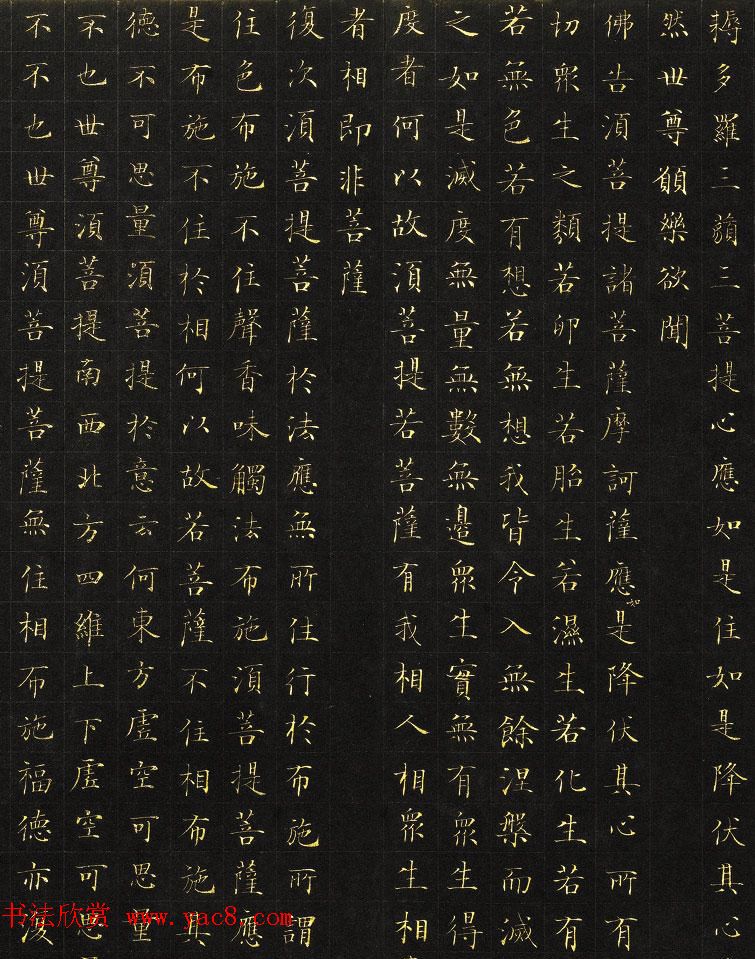 耨多羅三藐三菩提心應如是住如是降伏其心
然世尊願樂欲聞
佛告湏菩提諸菩薩摩訶薩應如是降伏其心所有
切眾生之類若卵生若胎生若濕生若化生若有
若無色若有想若無想我皆令入無餘涅槃而滅
之如是滅度無量無數無邊眾生實無有眾生得
度者何以故湏菩提若菩薩有我相人相眾生相
者相即非菩薩
復次湏菩提菩薩於法應無所住行於布施所謂
住色布施不住聲香味觸法布施湏菩提菩薩應
是布施不住於相何以故若菩薩不住相布施其
德不可思量湏菩提於意云何東方虛空可思量
不也世尊湏菩提南西北方四維上下虛空可思
不不也世尊湏菩提菩薩無住相布施福德亦復
书法欣赏 www.yac8.com